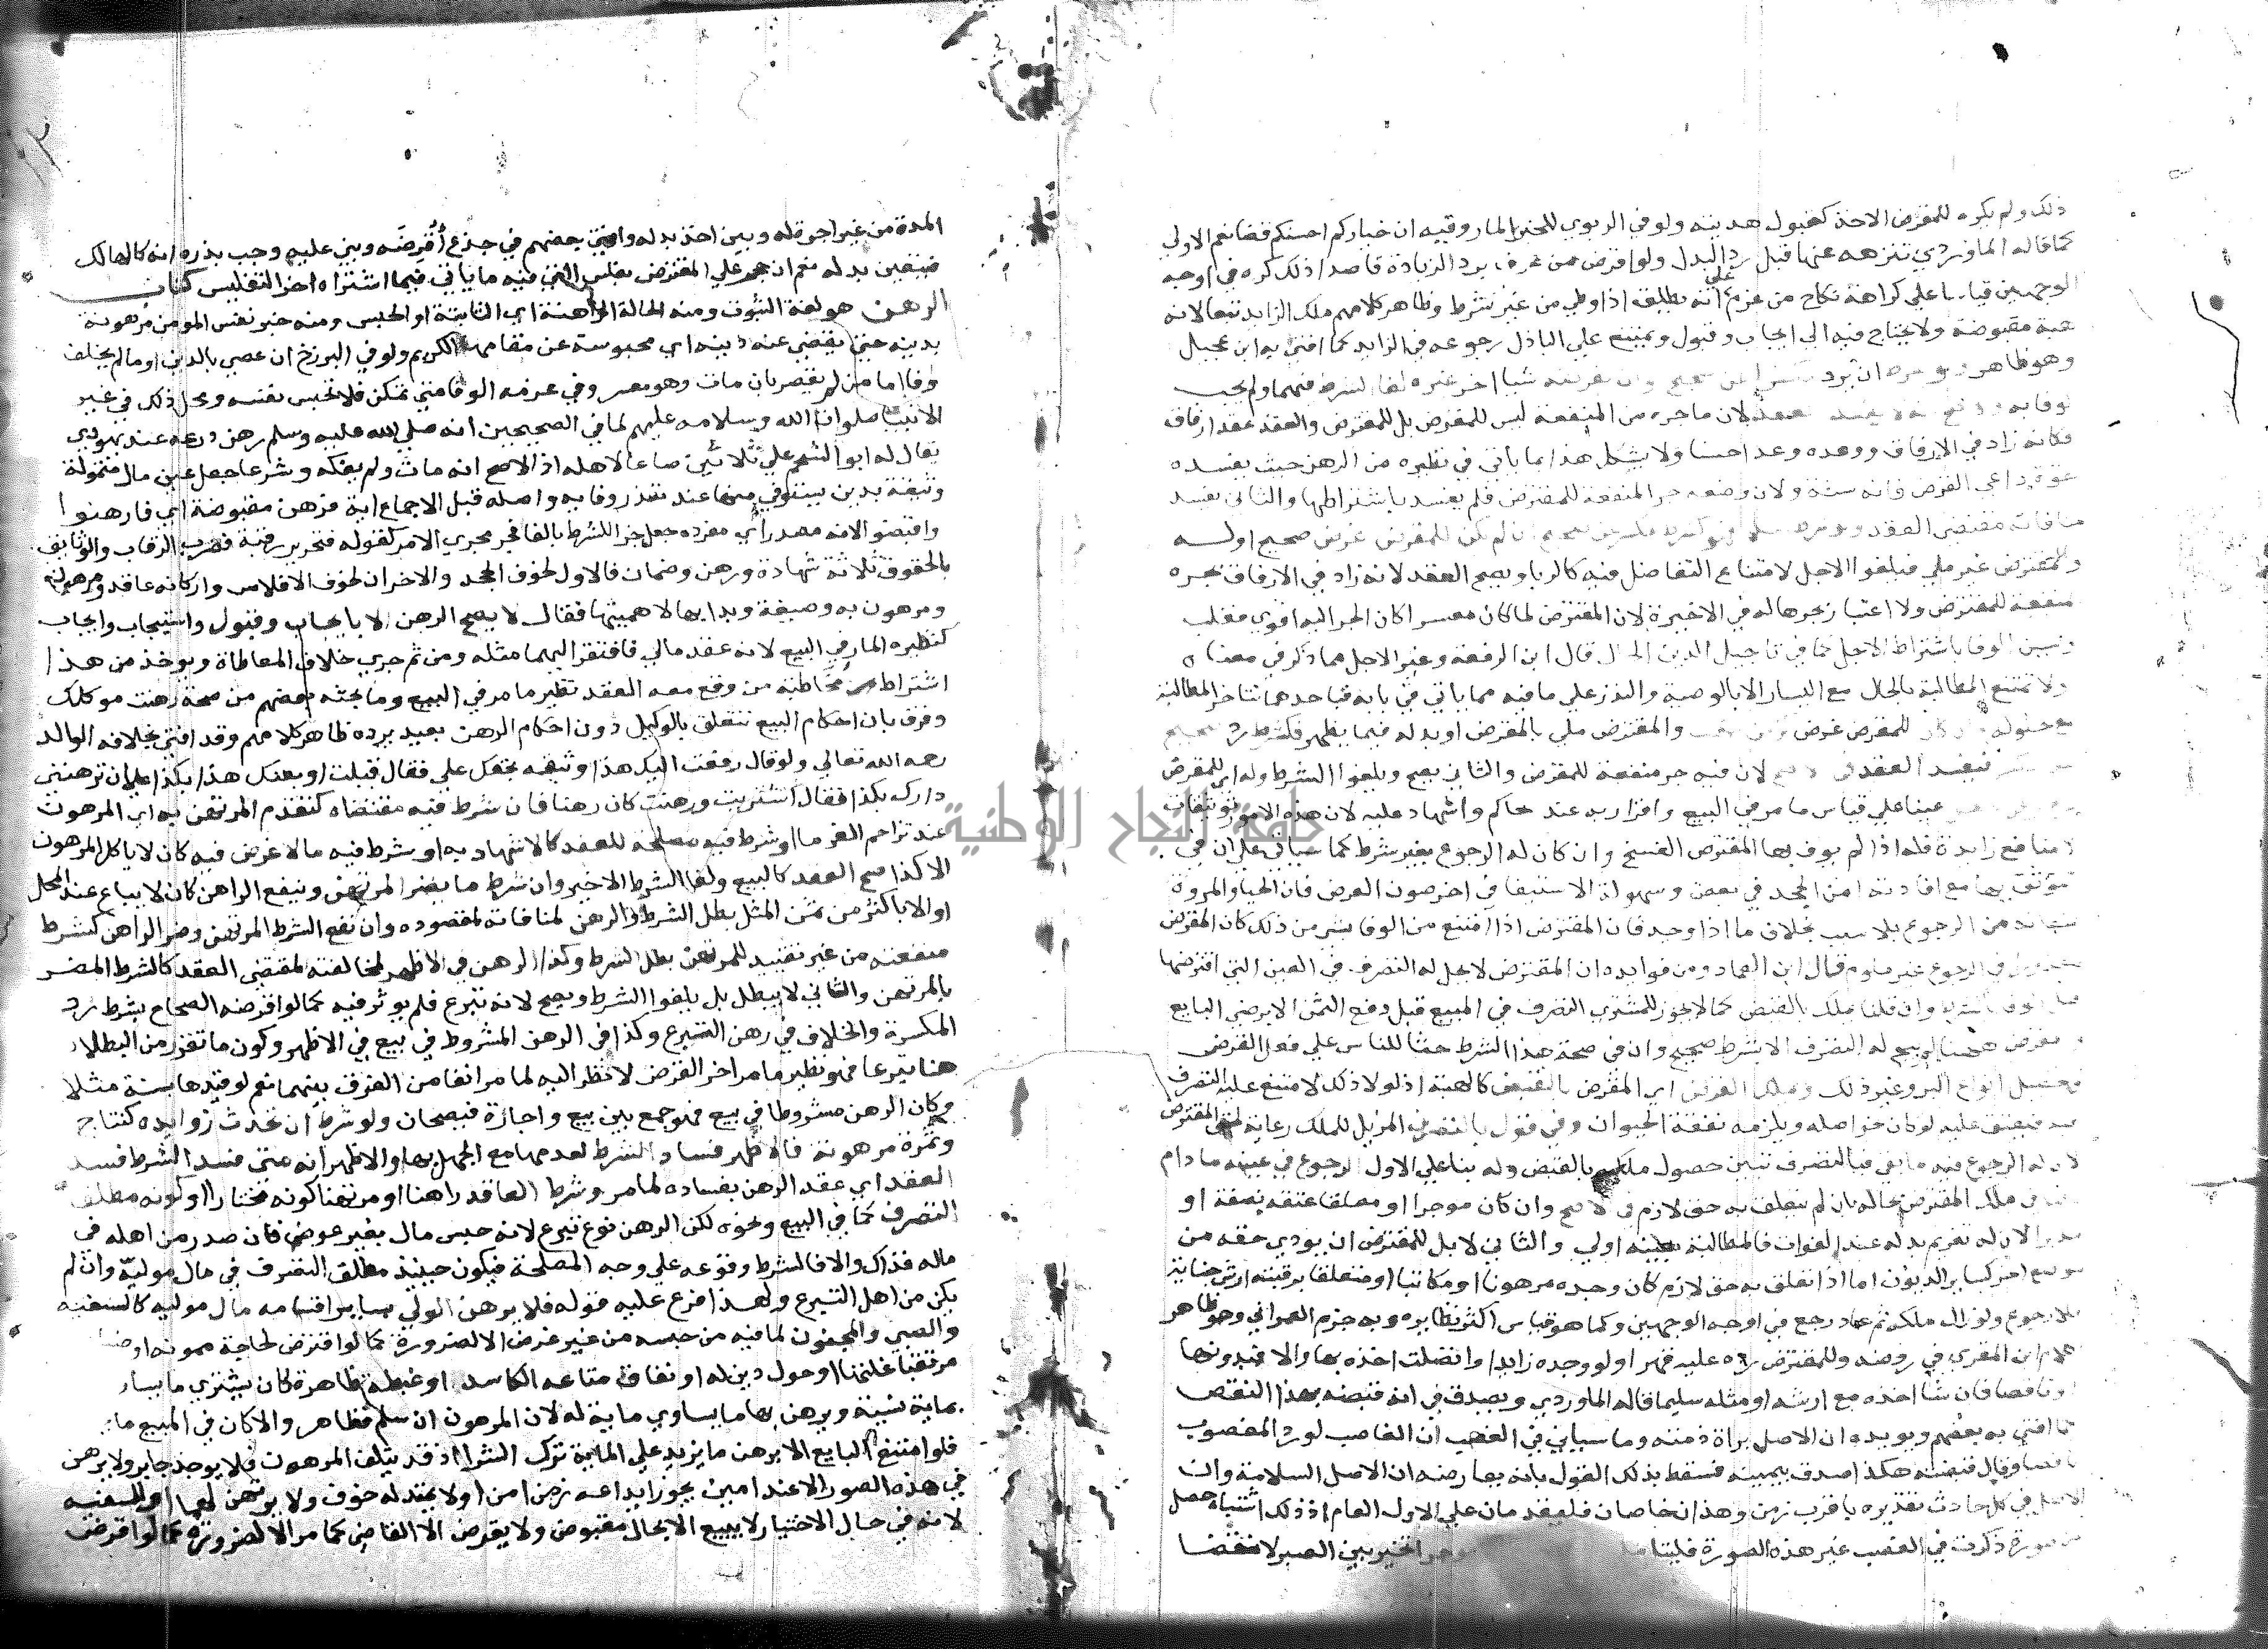 ذلك ولم يكره للمقرض الاخذ كقبول هديته ولو في الربوي للخبر المار وفيه ان خياركم احسنكم قضا نعم الاولي
كما قاله الماوردي تنزهه عنها قبل رد البدل ولو اقرض ممن عرف برد الزيادة قاصدا ذلك كره في اوجه
الوجهين قياسا علي كراهة نكاح من عزم علي انه يطلقه اذا وطي من غير شرط وظاهر كلامهم ملك الزايد تبعا لانه
هبة مقبوضة ولا يحتاج فيه الي ايجاب وقبول ويمتنع علي الباذل رجوعه في الزايد كما افتي به ابن عجيل
وهو ظاهر ولو شرط ان يرد صحيح وان يقرضه شيا اخر غيره لغا الشرط فيهما ولم يجب
لوفا به العقد لان ما جره من المنفعة ليس للمقرض بل للمقترض والعقد عقد ارفاق
فكانه زاد في الارفاق ووعده وعدا حسنا ولا يشكل هذا بما ياتي في نظيره من الرهن حيث يفسده
داعي القرض فانه سنة ولان وضعه جر المنفعة للمقترض فلم يفسد باشتراطها والثاني يفسد
منافات مقتضي العقد ان لم يكن للمقرض غرض صحيح او له
والمقترض غير ملي فيلغوا الاجل لامتناع التفاضل فيه كالربا ويصح العقد لانه زاد في الارفاق بجره
منفعة للمقترض ولا اعتبار بجرها له في الاخيرة لان المقترض لما كان معسرا كان الجر اليه اقوي فغلب
ويسن الوفا باشتراط الاجل كما في تاجيل الدين الحال قال ابن الرفعة وغير الاجل مما ذكر في معناه
ولا تمتنع المطالبة بالحال مع اليسار الا بالوصية والنذر علي ما فيه مما ياتي في بابه فباحدهما تتاخر المطالبة
مع حلوله وان كان للمقرض غرض والمقترض ملي بالمقرض او بدله فيما يظهر فكشرط رد صحيح
فيفسد العقد في الاصح لان فيه جر منفعة للمقرض والثاني يصح ويلغوا الشرط وله اي للمقرض
عينا علي قياس ما مر في البيع واقرار به عند حاكم واشهاد عليه لان هذه الامور توثيقات
لا منافع زايدة فله اذا لم يوف بها المقترض الفسخ وان كان له الرجوع بغير شرط كما سياتي علي ان في
التوثق بها مع افادته امن الجحد في بعض وسهولة الاستيفا في اخر صون العرض فان الحيا والمروة
يمنعانه من الرجوع بلا سبب بخلاف ما اذا وجد فان المقترض اذا امتنع من الوفا بشي من ذلك كان المقرض
معذورا في الرجوع غير ملوم قال ابن العماد ومن فوايده ان المقترض لا يحل له التصرف في العين التي اقترضها
قبل الوفا بالشرط وان قلنا يملك بالقبض كما لا يجوز للمشتري التصرف في المبيع قبل دفع الثمن الا برضي البايع
والمقرض هنا لم يبح له التصرف الا بشرط صحيح وان في صحة هذا الشرط حثا للناس علي فعل القرض
فيحصل انواع البر وغير ذلك ويملك القرض اي المقرض بالقبض كالهبة اذ لولا ذلك لامتنع عليه التصرف
فيه فيعتق عليه لو كان نحو اصله ويلزمه نفقة الحيوان وفي قول بالتصرف المزيل للملك رعاية لحق المقرض
لان له الرجوع فيه ما بقي فبالتصرف تبين حصول ملكه بالقبض وله بنا علي الاول الرجوع في عينه ما دام
باقيا في ملك المقترض بحاله بان لم يتعلق به حق لازم في الاصح وان كان موجرا او معلقا عتقه بصفة او
مدبرا لان له تغريم بدله عند الفوات فالمطالبة بعينه اولي والثاني لا بل للمقترض ان يودي حقه من
موضع اخر كساير الديون اما اذا تعلق به حق لازم كان وجده مرهونا او مكاتبا او متعلقا برقبته ارش جناية
فلا رجوع ولو زال ملكه ثم عاد رجع في اوجه الوجهين وكما هو قياس اكثر نظايره وبه جزم العمراني وهو ظاهر
كلام ابن المقري في روضه وللمقترض رده عليه قهرا ولو وجده زايدا وانفصلت اخذه بها والا فبدونها
او ناقصا فان شا اخذه مع ارشه او مثله سليما قاله الماوردي ويصدق في انه قبضه بهذا النقص
كما افتي به بعضهم ويويده ان الاصل براة ذمته وما سياتي في الغصب ان الغاصب لو رد المغصوب
ناقصا وقال قبضته هكذا صدق بيمينه فسقط بذلك القول بانه يعارضه ان الاصل السلامة وان
الاصل في كل حادث تقديره باقرب زمن وهذان خاصان فليقدمان علي الاول العام اذ ذلك اشتباه حصل
من صورة ذكرت في الغصب غير هذه الصورة فليتامل موجرا تخير بين الصبر لانقضا
المدة من غير اجرة له وبين اخذ بدله وافتي بعضهم في جذع اقرضه وبني عليه وجب بذره انه كالهالك
فيتعين بدله نعم ان حجر علي المقترض بفلس اتجه فيه ما ياتي فيما اشتراه اخر التفليس كتاب
الرهن هو لغة الثبوت ومنه الحالة الراهنة اي الثابتة او الحبس ومنه خبر نفس المومن مرهونة
بدينه حتي يقضي عنه دينه اي محبوسة عن مقامها الكريم ولو في البرزخ ان عصي بالدين او ما لم يخلف
وفا اما من لم يقصر بان مات وهو معسر وفي عزمه الوفا متي تمكن فلا تحبس نفسه ومحل ذلك في غير
الانبيا صلوات الله وسلامه عليهم لما في الصحيحين انه صلي الله عليه وسلم رهن درعه عند يهودي
يقال له ابو الشحم علي ثلاثين صاعا لاهله اذ الاصح انه مات ولم يفكه وشرعا جعل عين مال متمولة
وثيقة بدين يستوفي منها عند تعذر وفايه واصله قبل الاجماع اية فرهن مقبوضة اي فارهنوا
واقبضوا لانه مصدر اي مفرده جعل جزا للشرط بالفا فجر مجري الامر كقوله فتحرير رقبة فضرب الرقاب والوثايق
بالحقوق ثلاثة شهادة ورهن وضمان فالاول لخوف الجحد والاخران لخوف الافلاس واركانه عاقد ومرهون
ومرهون به وصيغة وبدا بها لاهميتها فقال لا يصح الرهن الا بايجاب وقبول واستيجاب وايجاب
كنظيره المار في البيع لانه عقد مالي فافتقر اليهما مثله ومن ثم جري خلاف المعاطاة ويوخذ من هذا
اشتراط مخاطبة من وقع معه العقد نظير ما مر في البيع وما بحثه بعضهم من صحة رهنت موكلك
وفرق بان احكام البيع تتعلق بالوكيل دون احكام الرهن بعيد يرده ظاهر كلامهم وقد افتي بخلافه الوالد
رحمه الله تعالي ولو قال دفعت اليك هذا وثيقة بحقك علي فقال قبلت او بعتك هذا بكذا علي ان ترهنني
دارك بكذا فقال اشتريت ورهنت كان رهنا فان شرط فيه مقتضاه كتقدم المرتهن به اي المرهون
عند تزاحم الغرما او شرط فيه مصلحة للعقد كالاشهاد به او شرط فيه ما لا غرض فيه كان لا ياكل المرهون
الا كذا صح العقد كالبيع ولغا الشرط الاخير وان شرط ما يضر المرتهن وينفع الراهن كان لا يباع عند المحل
او الا باكثر من ثمن المثل بطل الشرط والرهن لمنافاته لمقصوده وان نفع الشرط المرتهن وضر الراهن كشرط
منفعته من غير تقييد للمرتهن بطل الشرط وكذا الرهن في الاظهر لمخالفته لمقتضي العقد كالشرط المضر
بالمرتهن والثاني لا يبطل بل يلغوا الشرط ويصح لانه تبرع فلم يوثر فيه كما لو اقرضه الصحاح بشرط رد
المكسرة والخلاف في رهن التبرع وكذا في الرهن المشروط في بيع في الاظهر وكون ما تقرر من البطلان
هنا تبرعا فهو نظير ما مر اخر القرض لا نظر اليه لما مر انفا من الفرق بينهما نعم لو قيدها بسنة مثلا
وكان الرهن مشروطا في بيع فهو جمع بين بيع واجارة فيصحان ولو شرط ان تحدث زوايده كنتاج
وثمرة مرهونة فالاظهر فساد الشرط لعدمها مع الجهل بها والاظهر انه متي فسد الشرط فسد
العقد اي عقد الرهن بفساده لما مر وشرط العاقد راهنا او مرتهنا كونه مختارا وكونه مطلق
التصرف كما في البيع ونحوه لكن الرهن نوع تبرع لانه حبس مال بغير عوض فان صدر من اهله في
ماله فذاك والا فالشرط وقوعه علي وجه المصلحة فيكون حينئذ مطلق التصرف في مال موليه وان لم
يكن من اهل التبرع ولهذا فرع عليه قوله فلا يرهن الولي بساير اقسامه مال موليه كالسفيه
والصبي والمجنون لما فيه من حبسه من غير غرض الا لضرورة كما لو اقترض لحاجة ممونه او
مرتقبا غلتنا او حول دين له او نفاق متاعه الكاسد او غبطة ظاهرة كان يشتري ما يساو
بماية نسية ويرهن بها ما يساوي ماية له لان المرهون ان سلم فظاهر والا كان في المبيع ما
فلو امتنع البايع الا برهن ما يزيد علي الماية ترك الشرا اذ قد يتلف المرهون فلا يوجد جابر ولا يرهن
في هذه الصور الا عند امين يجوز ايداعه زمن امن او لا يمتد له خوف ولا يرتهن لهما او للسفيه
لانه في حال الاختيار لا يبيع الا بحال مقبوض ولا يقرض الا القاضي كما مر الا لضرورة كما لو اقرض